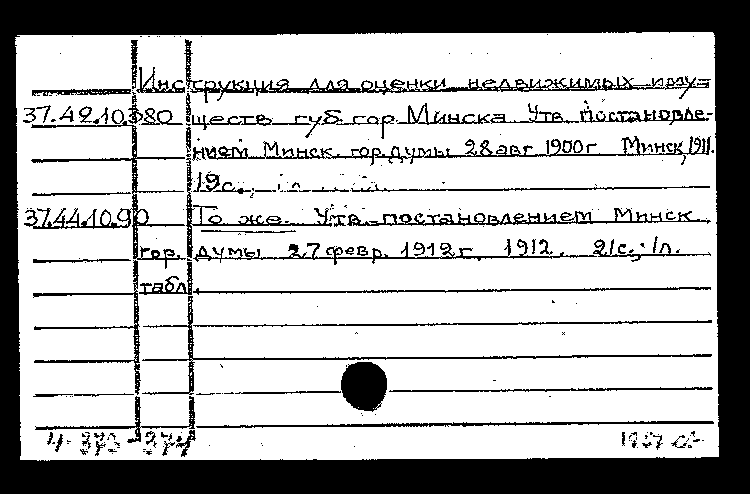 Инструкция для оценки недвижимых иму=
37.49.10.380 ществ губ. гор. Минска Утв. постановле-
нием Минск. гор. думы 28 авг 1900 г Минск, 1911.
19 с.,
37.44.10.90 То же. Утв. постановлением Минск
гор. думы 27 февр. 1912 г. 1912. 21 с.; 1 л.
табл.
4-373-374 1957